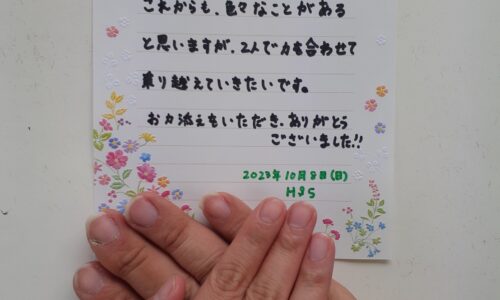 これからも、色々なことがある
と思いますが、2人で力を合わせて
乗り越えていきたいです。
お力添えもいただき、ありがとう
ございました!!
2023年10月8日(日)
H&S